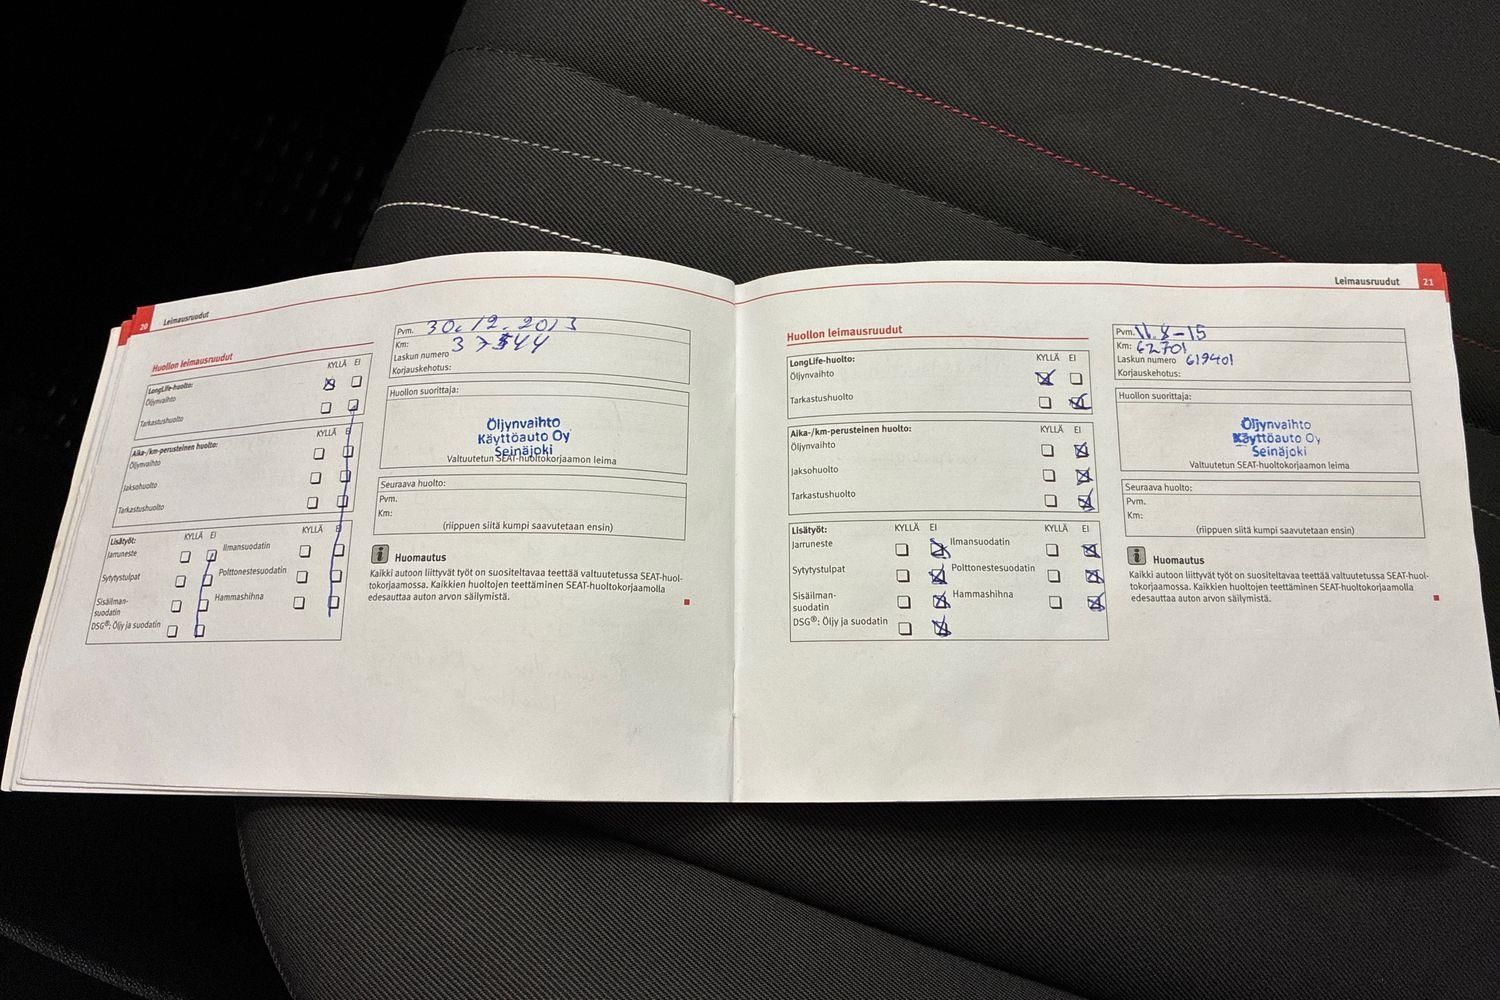 20 Leimausruudut
Huollon leimausruudut
KYLLÄ EI
LongLife-huolto:
Öljynvaihto
Tarkastushuolto
KYLLÄ E
Aika-/km-perusteinen huolto:
Öljynvaihto
Jaksohuolto
Tarkastushuolto
Lisätyöt: KYLLÄ EI KYLLÄ
Jarruneste Ilmansuodatin
Sytytystulpat Polttonestesuodatin
Sisäilman-
suodatin Hammashihna
DSG®: Öljy ja suodatin
Pvm. 30.12.2013
Km: 37544
Laskun numero
Korjauskehotus:
Huollon suorittaja:
Öljynvaihto
Käyttöauto Oy
Seinäjoki
Valtuutetun SEAT-huoltokorjaamon leima
Seuraava huolto:
Pvm.
Km:
(riippuen siitä kumpi saavutetaan ensin)
i Huomautus
Kaikki autoon liittyvät työt on suositeltavaa teettää valtuutetussa SEAT-huol-
tokorjaamossa. Kaikkien huoltojen teettäminen SEAT-huoltokorjaamolla
edesauttaa auton arvon säilymistä.
Leimausruudut 21
Huollon leimausruudut
LongLife-huolto: KYLLÄ EI
Öljynvaihto
Tarkastushuolto
Aika-/km-perusteinen huolto: KYLLÄ EI
Öljynvaihto
Jaksohuolto
Tarkastushuolto
Lisätyöt: KYLLÄ EI KYLLÄ EI
Jarruneste Ilmansuodatin
Sytytystulpat Polttonestesuodatin
Sisäilman-
suodatin Hammashihna
DSG®: Öljy ja suodatin
Pvm. 11.8-15
Km: 62701
Laskun numero 619401
Korjauskehotus:
Huollon suorittaja:
Öljynvaihto
Käyttöauto Oy
Seinäjoki
Valtuutetun SEAT-huoltokorjaamon leima
Seuraava huolto:
Pvm.
Km:
(riippuen siitä kumpi saavutetaan ensin)
i Huomautus
Kaikki autoon liittyvät työt on suositeltavaa teettää valtuutetussa SEAT-huol-
tokorjaamossa. Kaikkien huoltojen teettäminen SEAT-huoltokorjaamolla
edesauttaa auton arvon säilymistä.